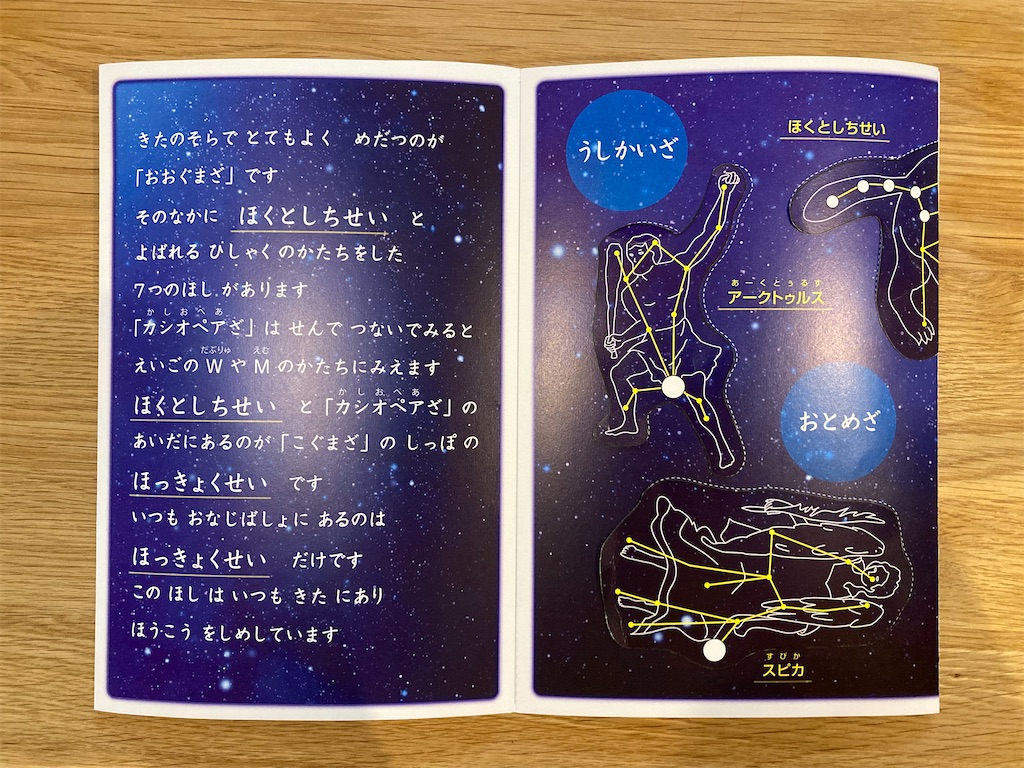 きたのそらで とてもよく めだつのが
「おおぐまざ」です
そのなかに ほくとしちせい と
よばれる ひしゃく のかたちをした
7つのほし があります
かしおぺあ
「カシオペアざ」は せんで つないでみると
だぶりゅ えむ
えいごの W や M のかたちにみえます
かしおぺあ
ほくとしちせい と「カシオペアざ」の
あいだにあるのが「こぐまざ」の しっぽ の
ほっきょくせい です
いつも おなじばしょに あるのは
ほっきょくせい だけです
この ほし は いつも きた にあり
ほうこう をしめしています
うしかいざ
ほくとしちせい
あーくとぅるす
アークトゥルス
おとめざ
すぴか
スピカ